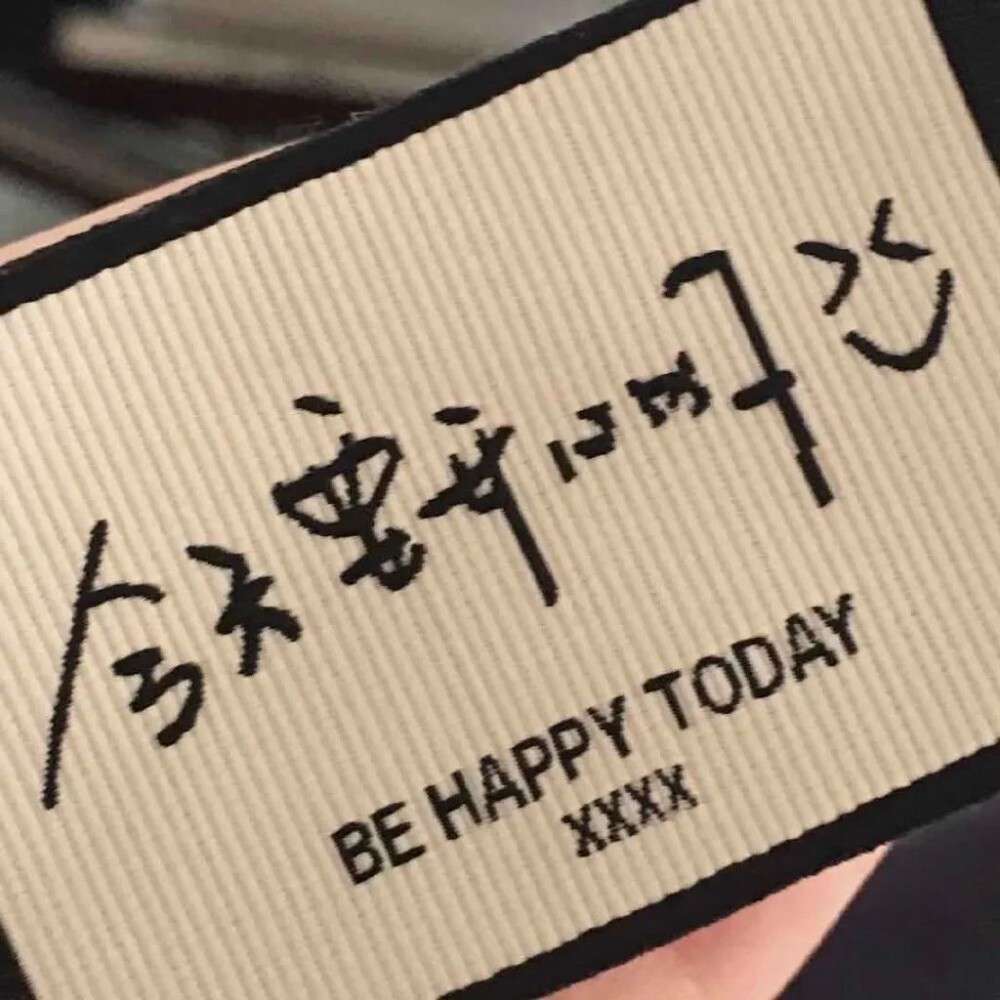 今天要
BE HAPPY TODAY
XXXX